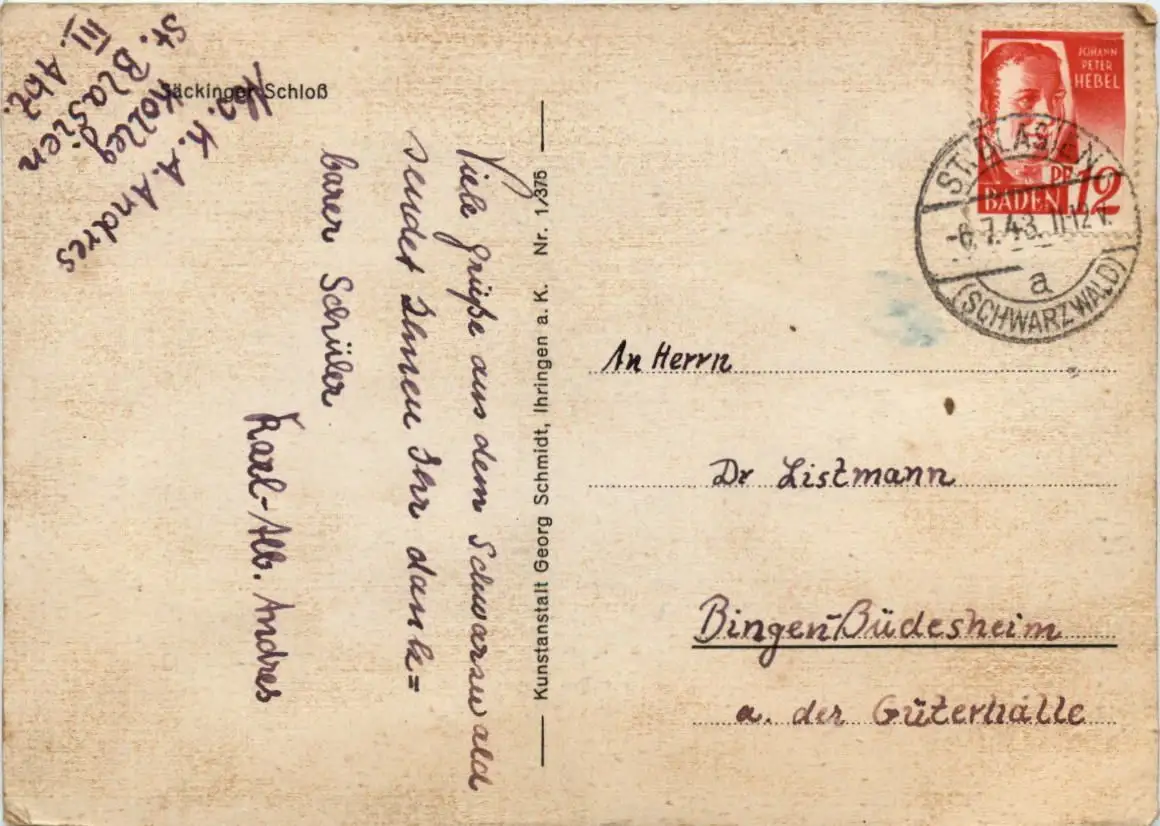 Säckinger Schloß
Abs. K. A. Andres
Kolleg
St. Blasien
III. Abt.
Viele Grüße aus dem Schwarzwald
sendet Ihnen Ihr dank=
barer Schüler
Karl-Alb. Andres
Kunstanstalt Georg Schmidt, Ihringen a. K. Nr. 1/375
JOHANN
PETER
HEBEL
PF 12
BADEN
ST. BLASIEN
-6.7.48. 11-12 V.
a
(SCHWARZWALD)
An Herrn
Dr Listmann
Bingen-Büdesheim
a. der Güterhalle